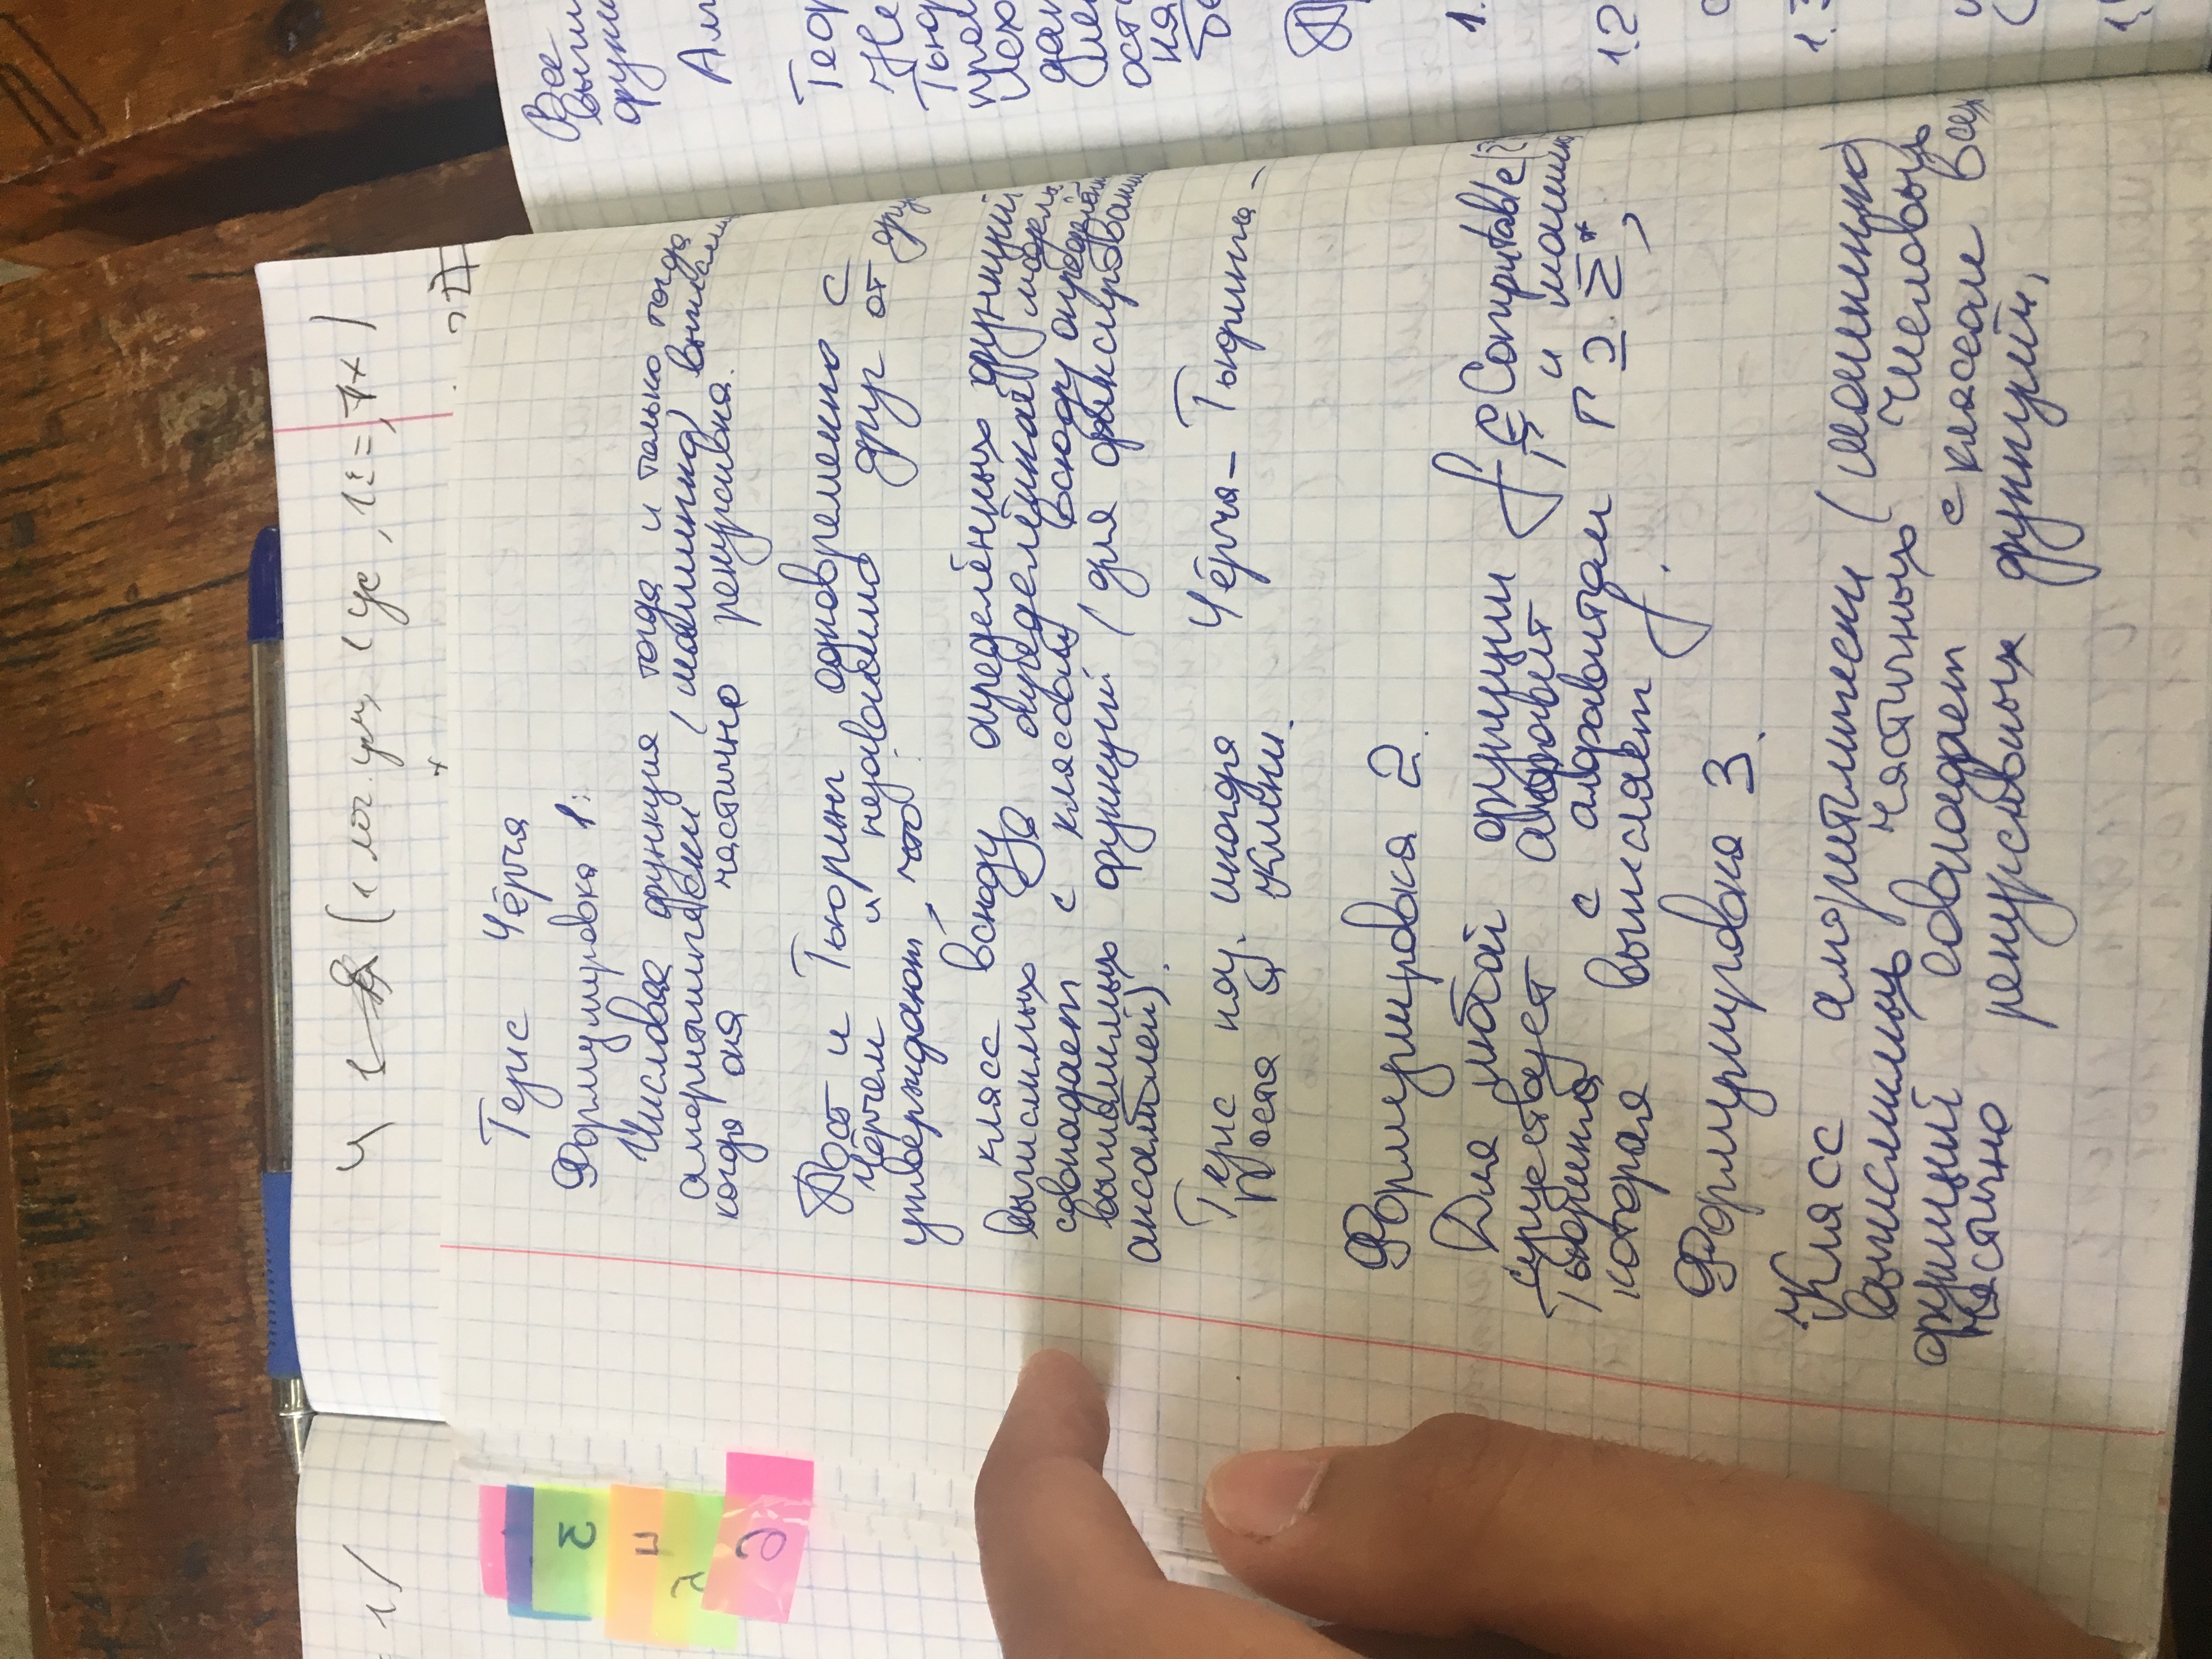 = 1)
4 1 (1 лог. ум, 1 ус, 1:=, 7+)
Тезис Чёрча
Формулировка 1:
Числовая функция тогда и только тогда
алгоритмически (машинно) вычислима
когда она частично рекурсивна.
Пост и Тьюринг одновременно с
Чёрчем и независимо друг от друг
утверждают, что:
класс всюду определённых функций
вычислимых в определённой модели
совпадает с классом всюду определённ
вычислимых функций (для фиксированн
ансамблей).
Тезис наз. иногда Чёрча-Тьюринга-
Поста и Клини.
Формулировка 2.
Для любой функции f ∈ Computable(Σ
существует алфавит Γ и машина
Тьюринга с алфавитом Γ ⊇ Σ*,
которая вычисляет f.
Формулировка 3.
Класс алгоритмически (машинно)
вычислимых частичных числовых
функций совпадает с классом всех
частично рекурсивных функций,
3
4
5
6
Все
вычи
функ
Алг
Теор
Не
Тьюр
прои
исх
дан
ост
на
бе
1.
1.2
1.3